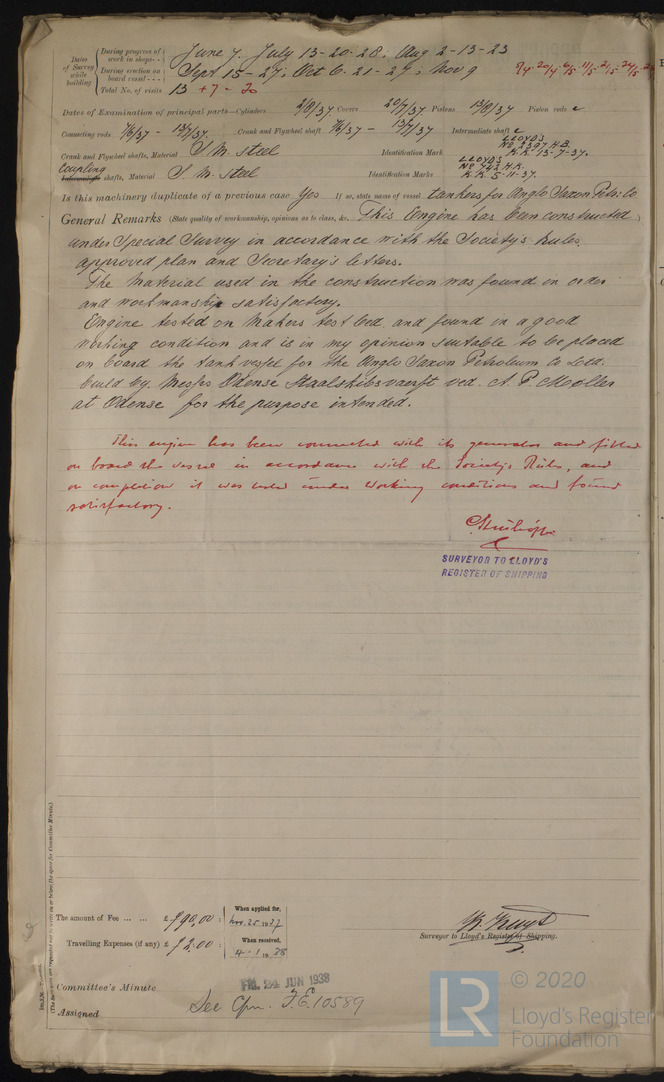 Dates of Survey while building
During progress of work in shops - - June 7. July 13-20-28; Aug 2-13-23
During erection on board vessel - - - Sept 15-27; Oct 6-21-27; Nov 9
Total No. of visits 13 + 7 = 20
Dates of Examination of principal parts—Cylinders 2/8/37 Covers 20/7/37 Pistons 13/8/37 Piston rods
Connecting rods 7/6/37 - 13/7/37. Crank and Flywheel shaft 7/6/37 - 13/7/37 Intermediate shaft
Crank and Flywheel shafts, Material S. M. steel Identification Mark LLOYDS No 2397 H.B. K.K. 13-7-37.
Coupling shafts, Material S. M. steel Identification Marks LLOYDS No 422 H.K. K.K. 5-11-37.
Is this machinery duplicate of a previous case Yes If so, state name of vessel tankers for Anglo Saxon Petr. Co
General Remarks (State quality of workmanship, opinions as to class, &c. This Engine has been constructed
under Special Survey in accordance with the Society's Rules,
approved plan and Secretary's letters.
The material used in the construction was found in order
and workmanship satisfactory.
Engine tested on Makers test bed and found in a good
working condition and is in my opinion suitable to be placed
on board the tank vessel for the Anglo Saxon Petroleum Co Ltd.
build by Messrs Odense Staalskibsvaerft ved. A. P. Moller
at Odense for the purpose intended.
This engine has been connected with its generator and fitted
on board the vessel in accordance with the Society's Rules, and
on completion it was tested under working conditions and found
satisfactory.
SURVEYOR TO LLOYD'S
REGISTER OF SHIPPING
The amount of Fee ... ... £ 90.00 : When applied for, Nov. 25 1937
Travelling Expenses (if any) £ 2.00 : When received, 4-1 1938
Surveyor to Lloyd's Register of Shipping.
FRI. 24 JUN 1938
Committee's Minute
Assigned See Cpn. F.E. 10589
(The Surveyors are requested not to write on or below the space for Committee Minute.)
LR
© 2020
Lloyd's Register
Foundation